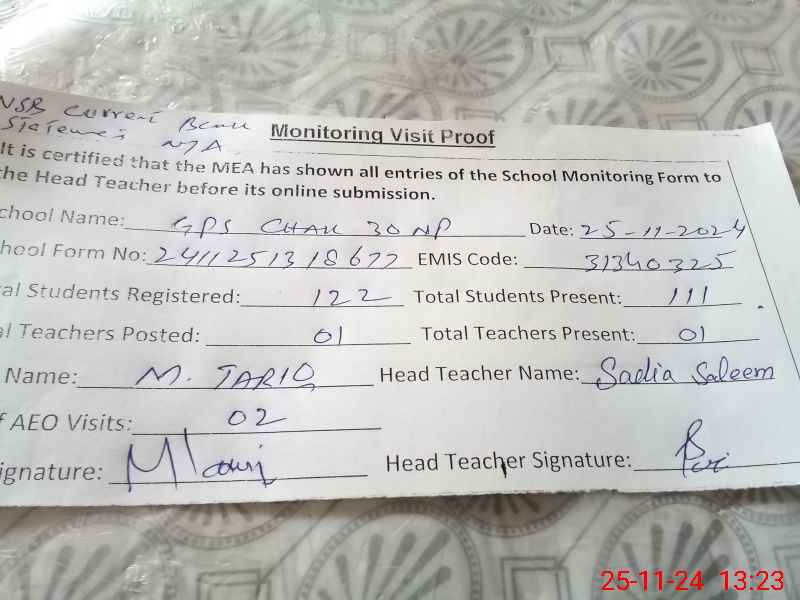 NSB Current Bank
Statement N/A
Monitoring Visit Proof
It is certified that the MEA has shown all entries of the School Monitoring Form to
the Head Teacher before its online submission.
chool Name: GPS CHAK 30 NP Date: 25-11-2024
hool Form No: 2411251318677 EMIS Code: 31340325
al Students Registered: 122 Total Students Present: 111
al Teachers Posted: 01 Total Teachers Present: 01
Name: M. TARIQ Head Teacher Name: Sadia Saleem
f AEO Visits: 02
ignature: Head Teacher Signature:
25-11-24 13:23